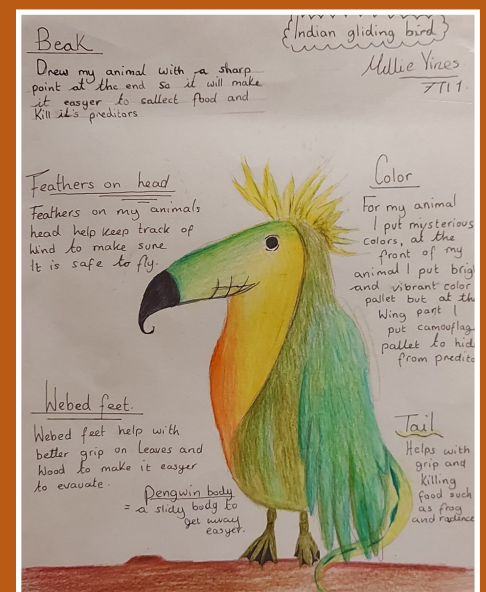 Indian gliding bird
Millie Vines
7T11
Beak
Drew my animal with a sharp
point at the end so it will make
it easyer to sallect food and
Kill it's preditors
Feathers on head
Feathers on my animals
head help keep track of
Wind to make sure
It is safe to fly.
Color
For my animal
I put mysterious
colors, at the
front of my
animal I put brig
and vibrant color
pallet but at th
Wing part I
put camouflag
pallet to hid
from predito
Webed feet.
Webed feet help with
better grip on Leaves and
Wood to make it easyer
to evauate.
Pengwin body
= a slidy body to
get away
easyer.
Tail
Helps with
grip and
Killing
food such
as frog
and